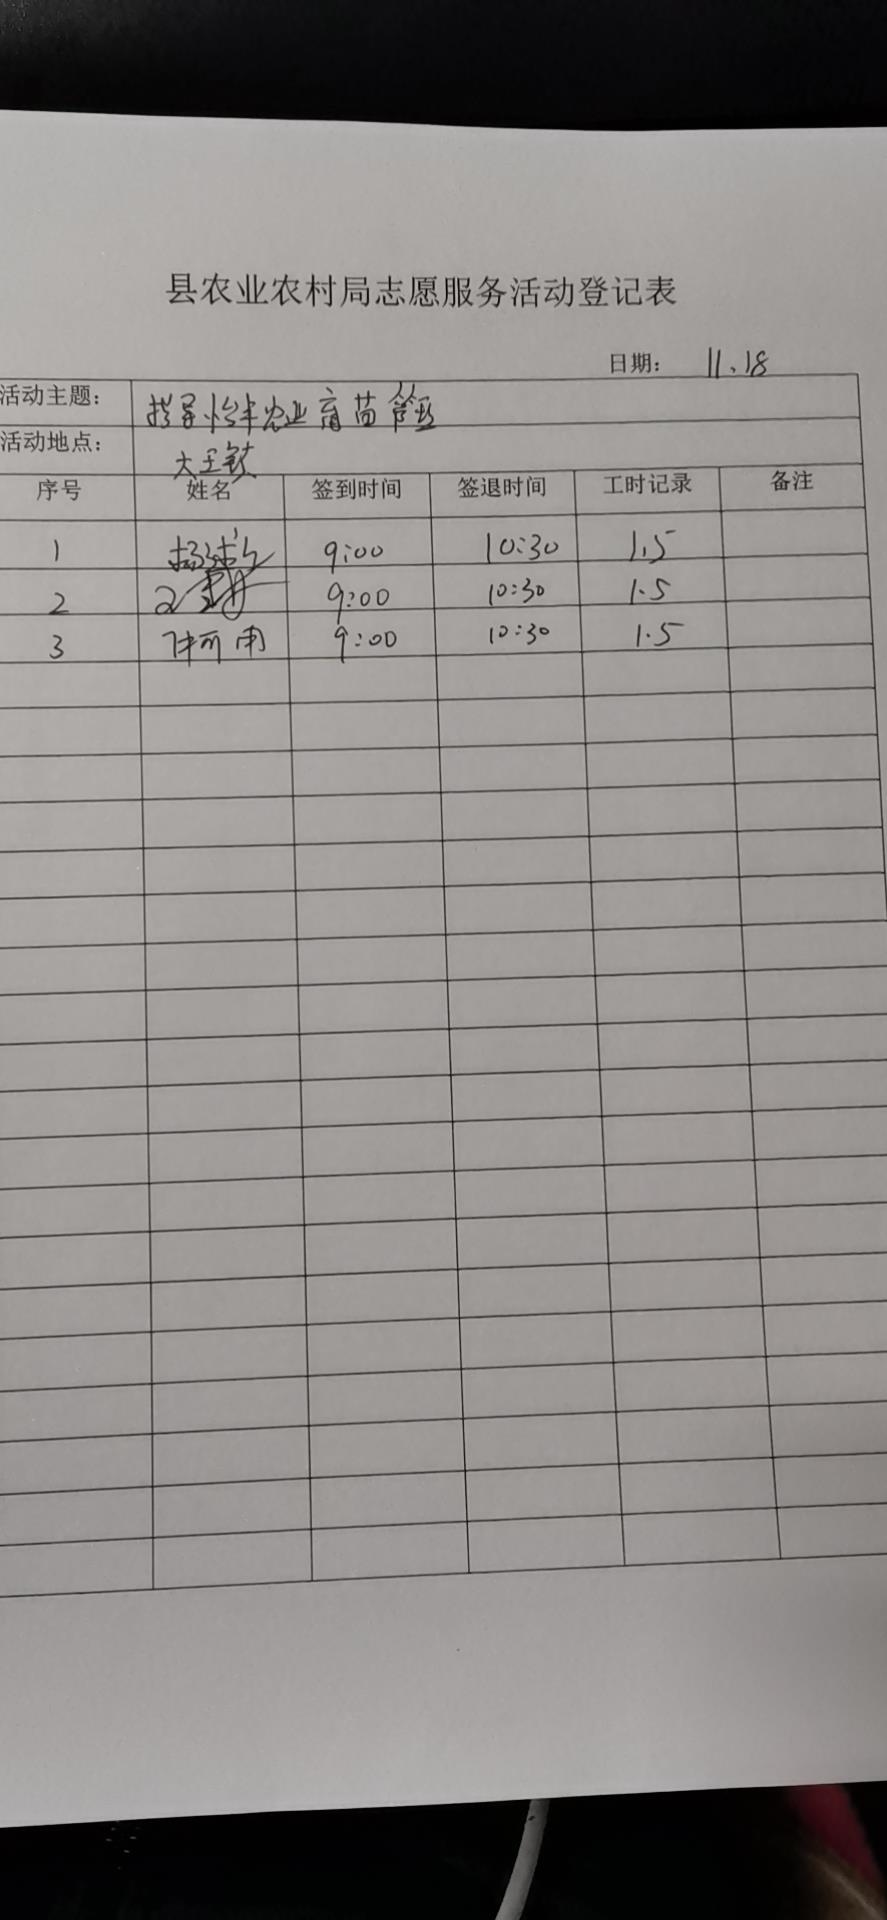 县农业农村局志愿服务活动登记表
日期： 11.18
活动主题： 指导怡丰农业育苗管理
活动地点： 大王镇
序号 姓名 签到时间 签退时间 工时记录 备注
1 9:00 10:30 1.5
2 9:00 10:30 1.5
3 9:00 10:30 1.5